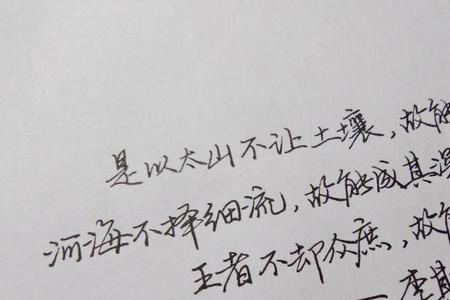 是以太山不让土壤，故能
河海不择细流，故能成其深
王者不却众庶，故能
— 李斯